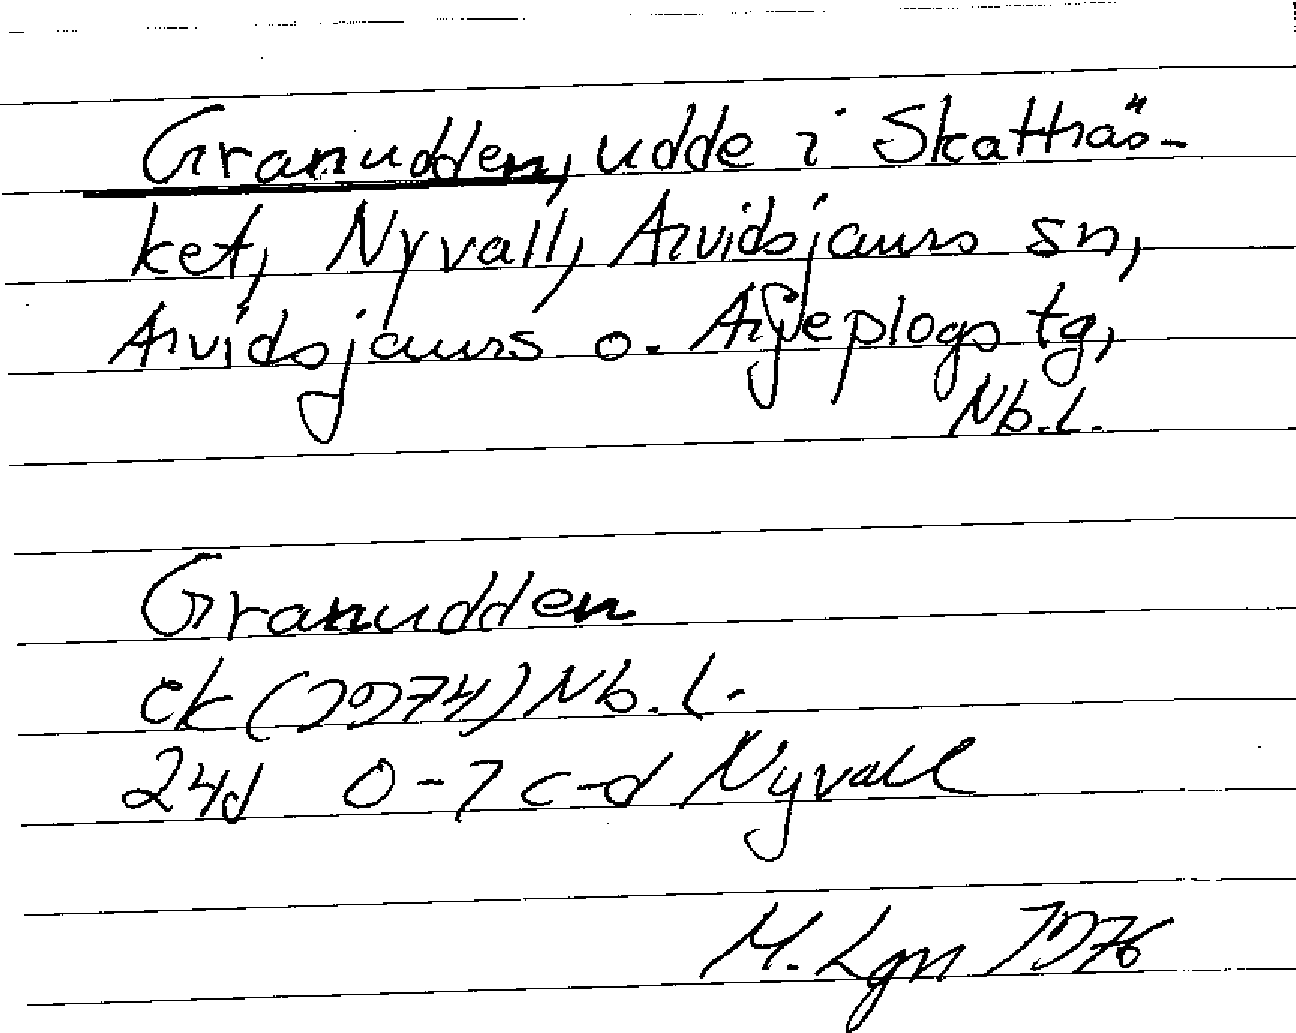 Granudden, udde i Skatträs-
ket, Nyvall, Arvidsjaurs sn,
Arvidsjaurs o. Arjeplogs tg,
Nb.l.
Granudden
ek (1974) Nb.l.
24J 0-1 c-d Nyvall
M. Lgn 1976